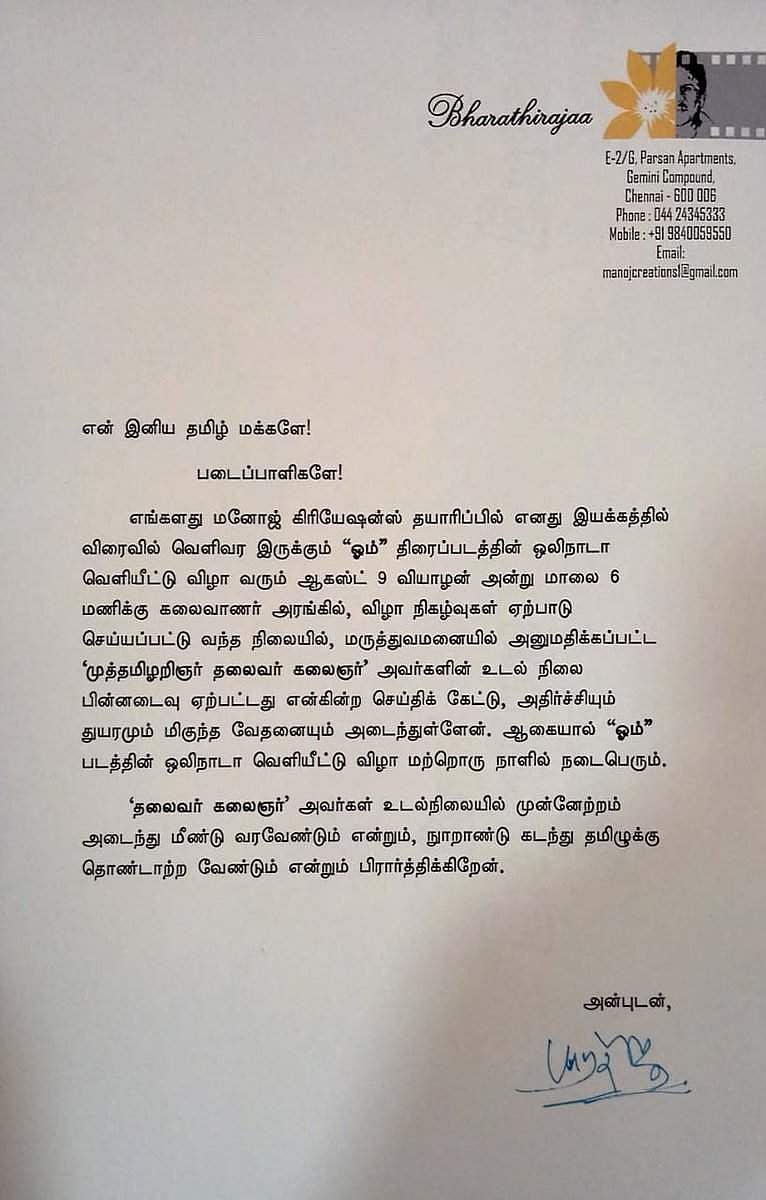 Bharathirajaa
E-2/6, Parsan Apartments,
Gemini Compound,
Chennai - 600 006
Phone : 044 24345333
Mobile : +91 9840059550
Email:
manojcreations1@gmail.com
என் இனிய தமிழ் மக்களே!
படைப்பாளிகளே!
எங்களது மனோஜ் கிரியேஷன்ஸ் தயாரிப்பில் எனது இயக்கத்தில்
விரைவில் வெளிவர இருக்கும் “ஓம்” திரைப்படத்தின் ஒலிநாடா
வெளியீட்டு விழா வரும் ஆகஸ்ட் 9 வியாழன் அன்று மாலை 6
மணிக்கு கலைவாணர் அரங்கில், விழா நிகழ்வுகள் ஏற்பாடு
செய்யப்பட்டு வந்த நிலையில், மருத்துவமனையில் அனுமதிக்கப்பட்ட
‘முத்தமிழறிஞர் தலைவர் கலைஞர்’ அவர்களின் உடல் நிலை
பின்னடைவு ஏற்பட்டது என்கின்ற செய்திக் கேட்டு, அதிர்ச்சியும்
துயரமும் மிகுந்த வேதனையும் அடைந்துள்ளேன். ஆகையால் “ஓம்”
படத்தின் ஒலிநாடா வெளியீட்டு விழா மற்றொரு நாளில் நடைபெரும்.
‘தலைவர் கலைஞர்’ அவர்கள் உடல்நிலையில் முன்னேற்றம்
அடைந்து மீண்டு வரவேண்டும் என்றும், நூறாண்டு கடந்து தமிழுக்கு
தொண்டாற்ற வேண்டும் என்றும் பிரார்த்திக்கிறேன்.
அன்புடன்,